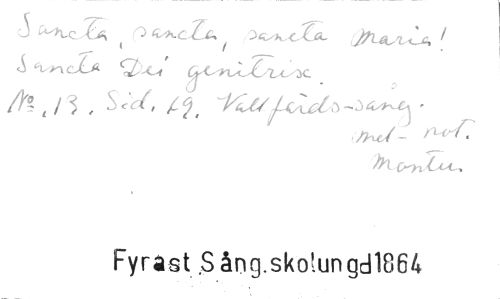 Sancta, sancta, sancta Maria!
Sancta Dei genitrix.
No. 13. Sid. 19. Vallfärds-sång.
mel- not.
Fyrast Sång.skolungd1864